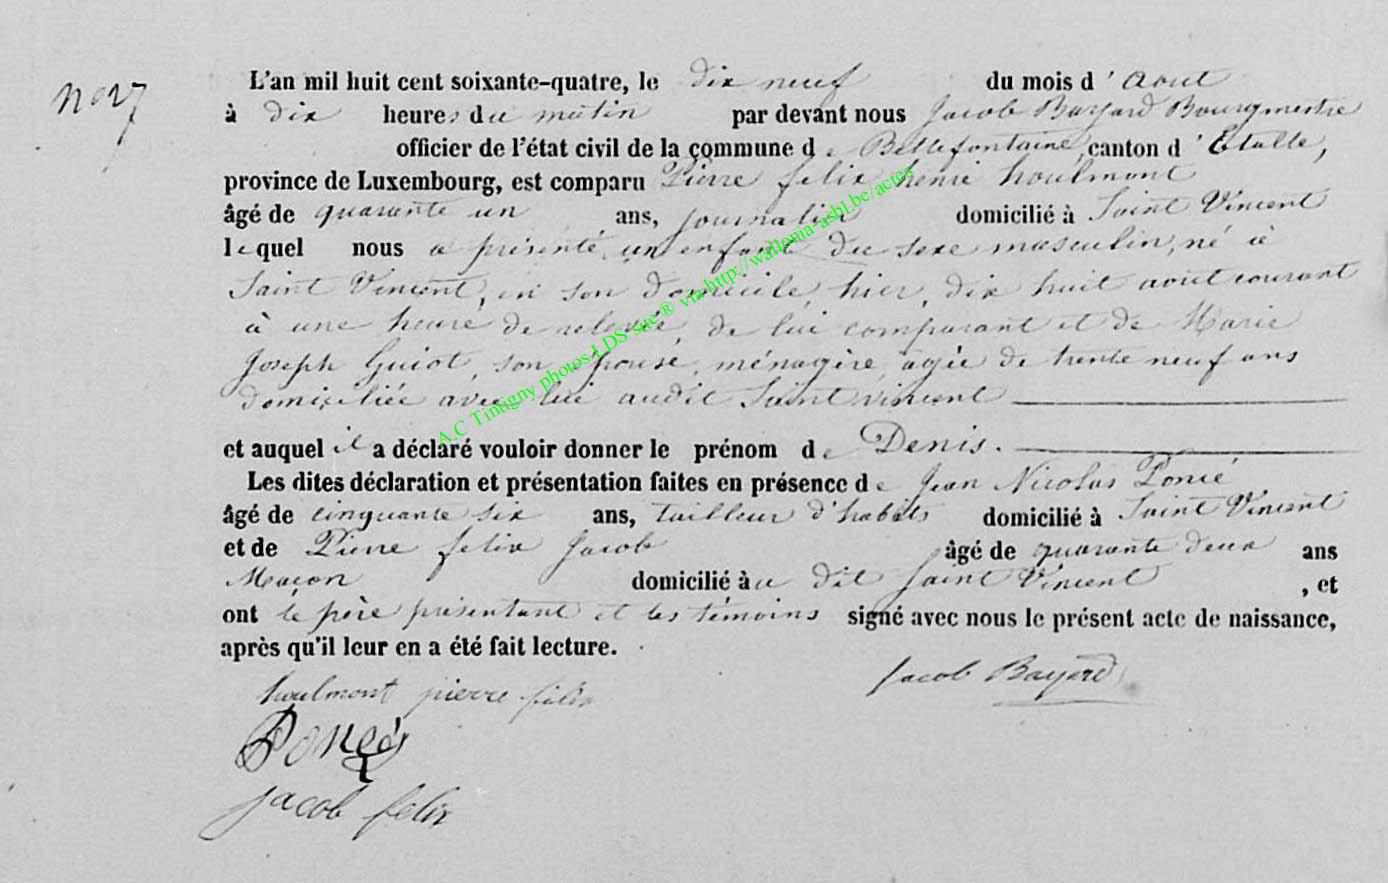 No 27
L'an mil huit cent soixante-quatre, le dix neuf du mois d'aout
à dix heures du matin par devant nous Jacob Bayard Bourgmestre
officier de l'état civil de la commune de Bellefontaine, canton d'Etalle,
province de Luxembourg, est comparu Pierre felix henri houlmont
âgé de quarante un ans, journalier domicilié à Saint Vincent
lequel nous a présenté un enfant du sexe masculin, né à
Saint Vincent, en son domicile, hier, dix huit aout courant
à une heure de relevée, de lui comparant et de Marie
Joseph Guiot, son épouse, ménagère, agée de trente neuf ans
domiciliée avec lui audit Saint vincent
et auquel il a déclaré vouloir donner le prénom de Denis.
Les dites déclaration et présentation faites en présence de Jean Nicolas Poncé
âgé de cinquante six ans, tailleur d'habits domicilié à Saint Vincent
et de Pierre felix Jacob âgé de quarante deux ans
Maçon domicilié au dit Saint Vincent, et
ont le père présentant et les témoins signé avec nous le présent acte de naissance,
après qu'il leur en a été fait lecture.
houlmont pierre félix
Jacob Bayard
Poncé
Jacob felix
A.C Tintigny photos LDS site ® via http://wallonia-asbl.be/actes